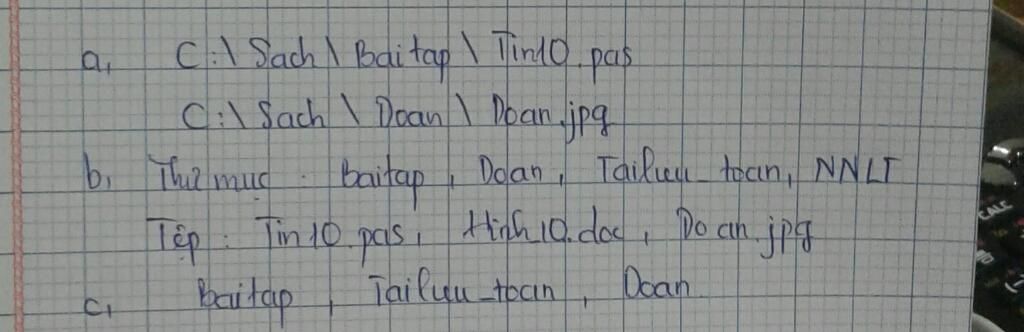 a, C:\ Sach \ Baitap \ Tin10.pas
C:\ Sach \ Doan \ Doan.jpg
b, Thư mục : baitap, Doan, Tailieu_toan, NNLT
Tệp : Tin10.pas, Hinh10.doc, Doan.jpg
c, baitap, Tailieu_toan, Doan
CALC